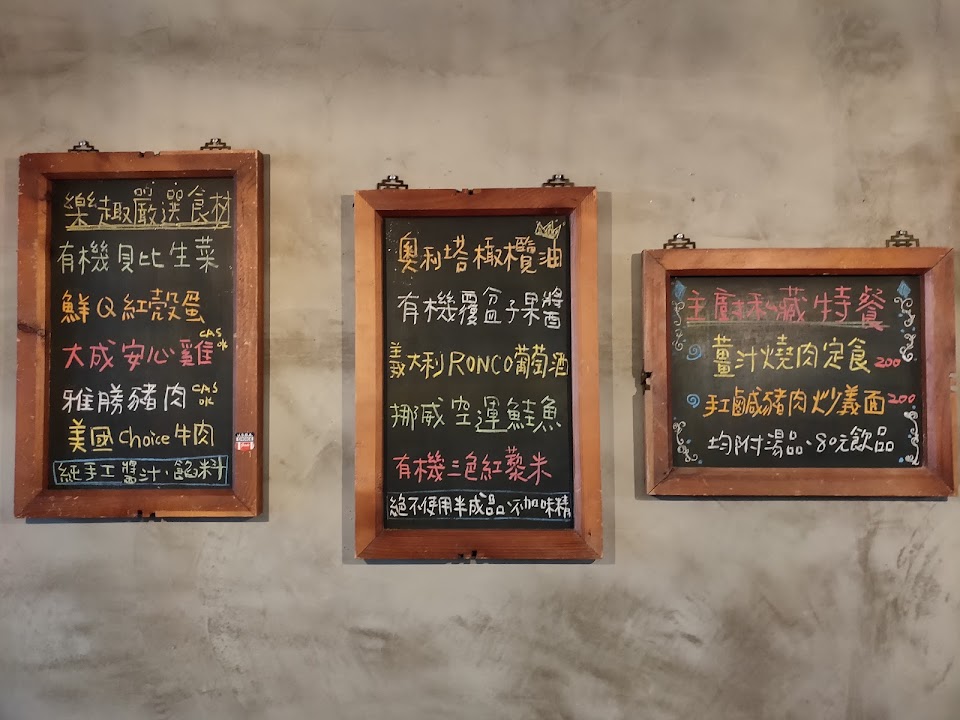 樂趣嚴選食材
有機貝比生菜
鮮Q紅殼蛋
大成安心雞 CAS ok
雅勝豬肉 CAS ok
美國Choice牛肉
純手工醬汁、餡料
奧利塔橄欖油
有機覆盆子果醬
義大利RONCO葡萄酒
挪威空運鮭魚
有機三色紅藜米
絕不使用半成品、不加味精
主廚私藏特餐
薑汁燒肉定食 200
手工鹹豬肉炒義面 200
均附湯品、80元飲品